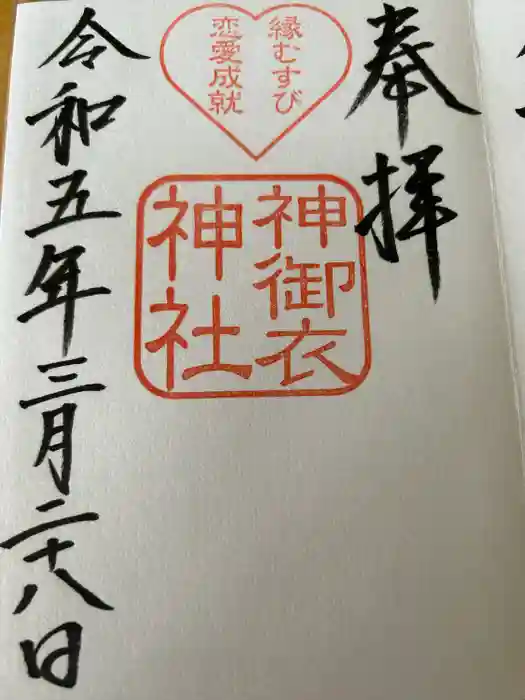 奉拝
縁むすび
恋愛成就
神御衣
神社
令和五年三月二十八日